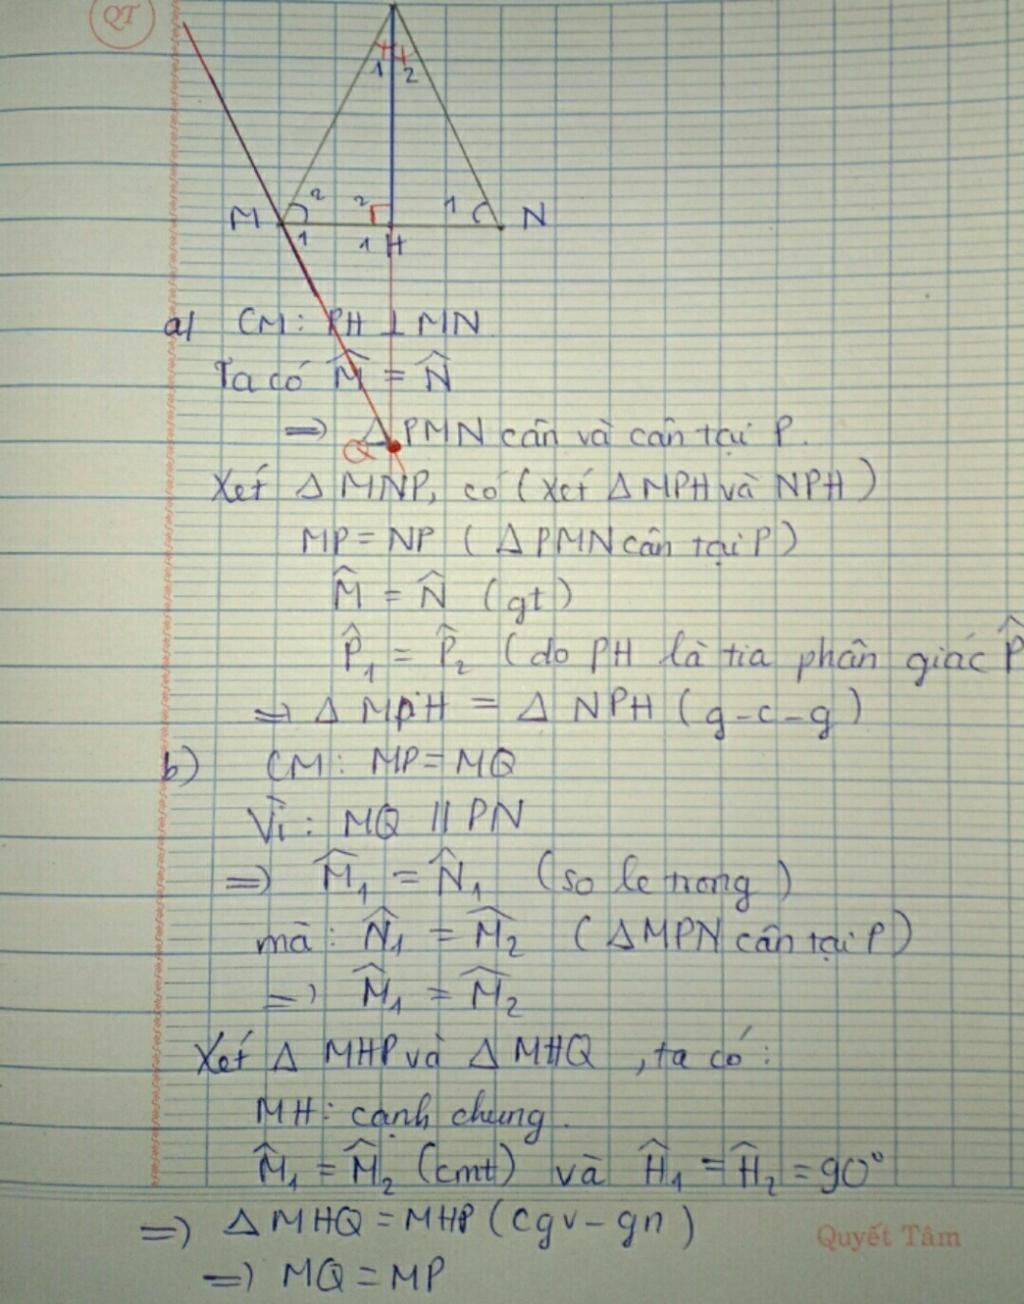 QT
1 2
M 2 2 1 N
1 1 H
a) CM: PH ⊥ MN
Ta có M̂ = N̂
=> Δ PMN cân và cân tại P.
Q
Xét Δ MNP, có (xét Δ MPH và NPH)
MP = NP (Δ PMN cân tại P)
M̂ = N̂ (gt)
P̂₁ = P̂₂ (do PH là tia phân giác P̂
=> Δ MPH = Δ NPH (g-c-g)
b) CM: MP = MQ
Vì: MQ // PN
=> M̂₁ = N̂₁ (so le trong)
mà: N̂₁ = M̂₂ (ΔMPN cân tại P)
=> M̂₁ = M̂₂
Xét Δ MHP và Δ MHQ, ta có:
MH: cạnh chung.
M̂₁ = M̂₂ (cmt) và Ĥ₁ = Ĥ₂ = 90°
=> Δ MHQ = MHP (cgv - gn)
Quyết Tâm
=> MQ = MP